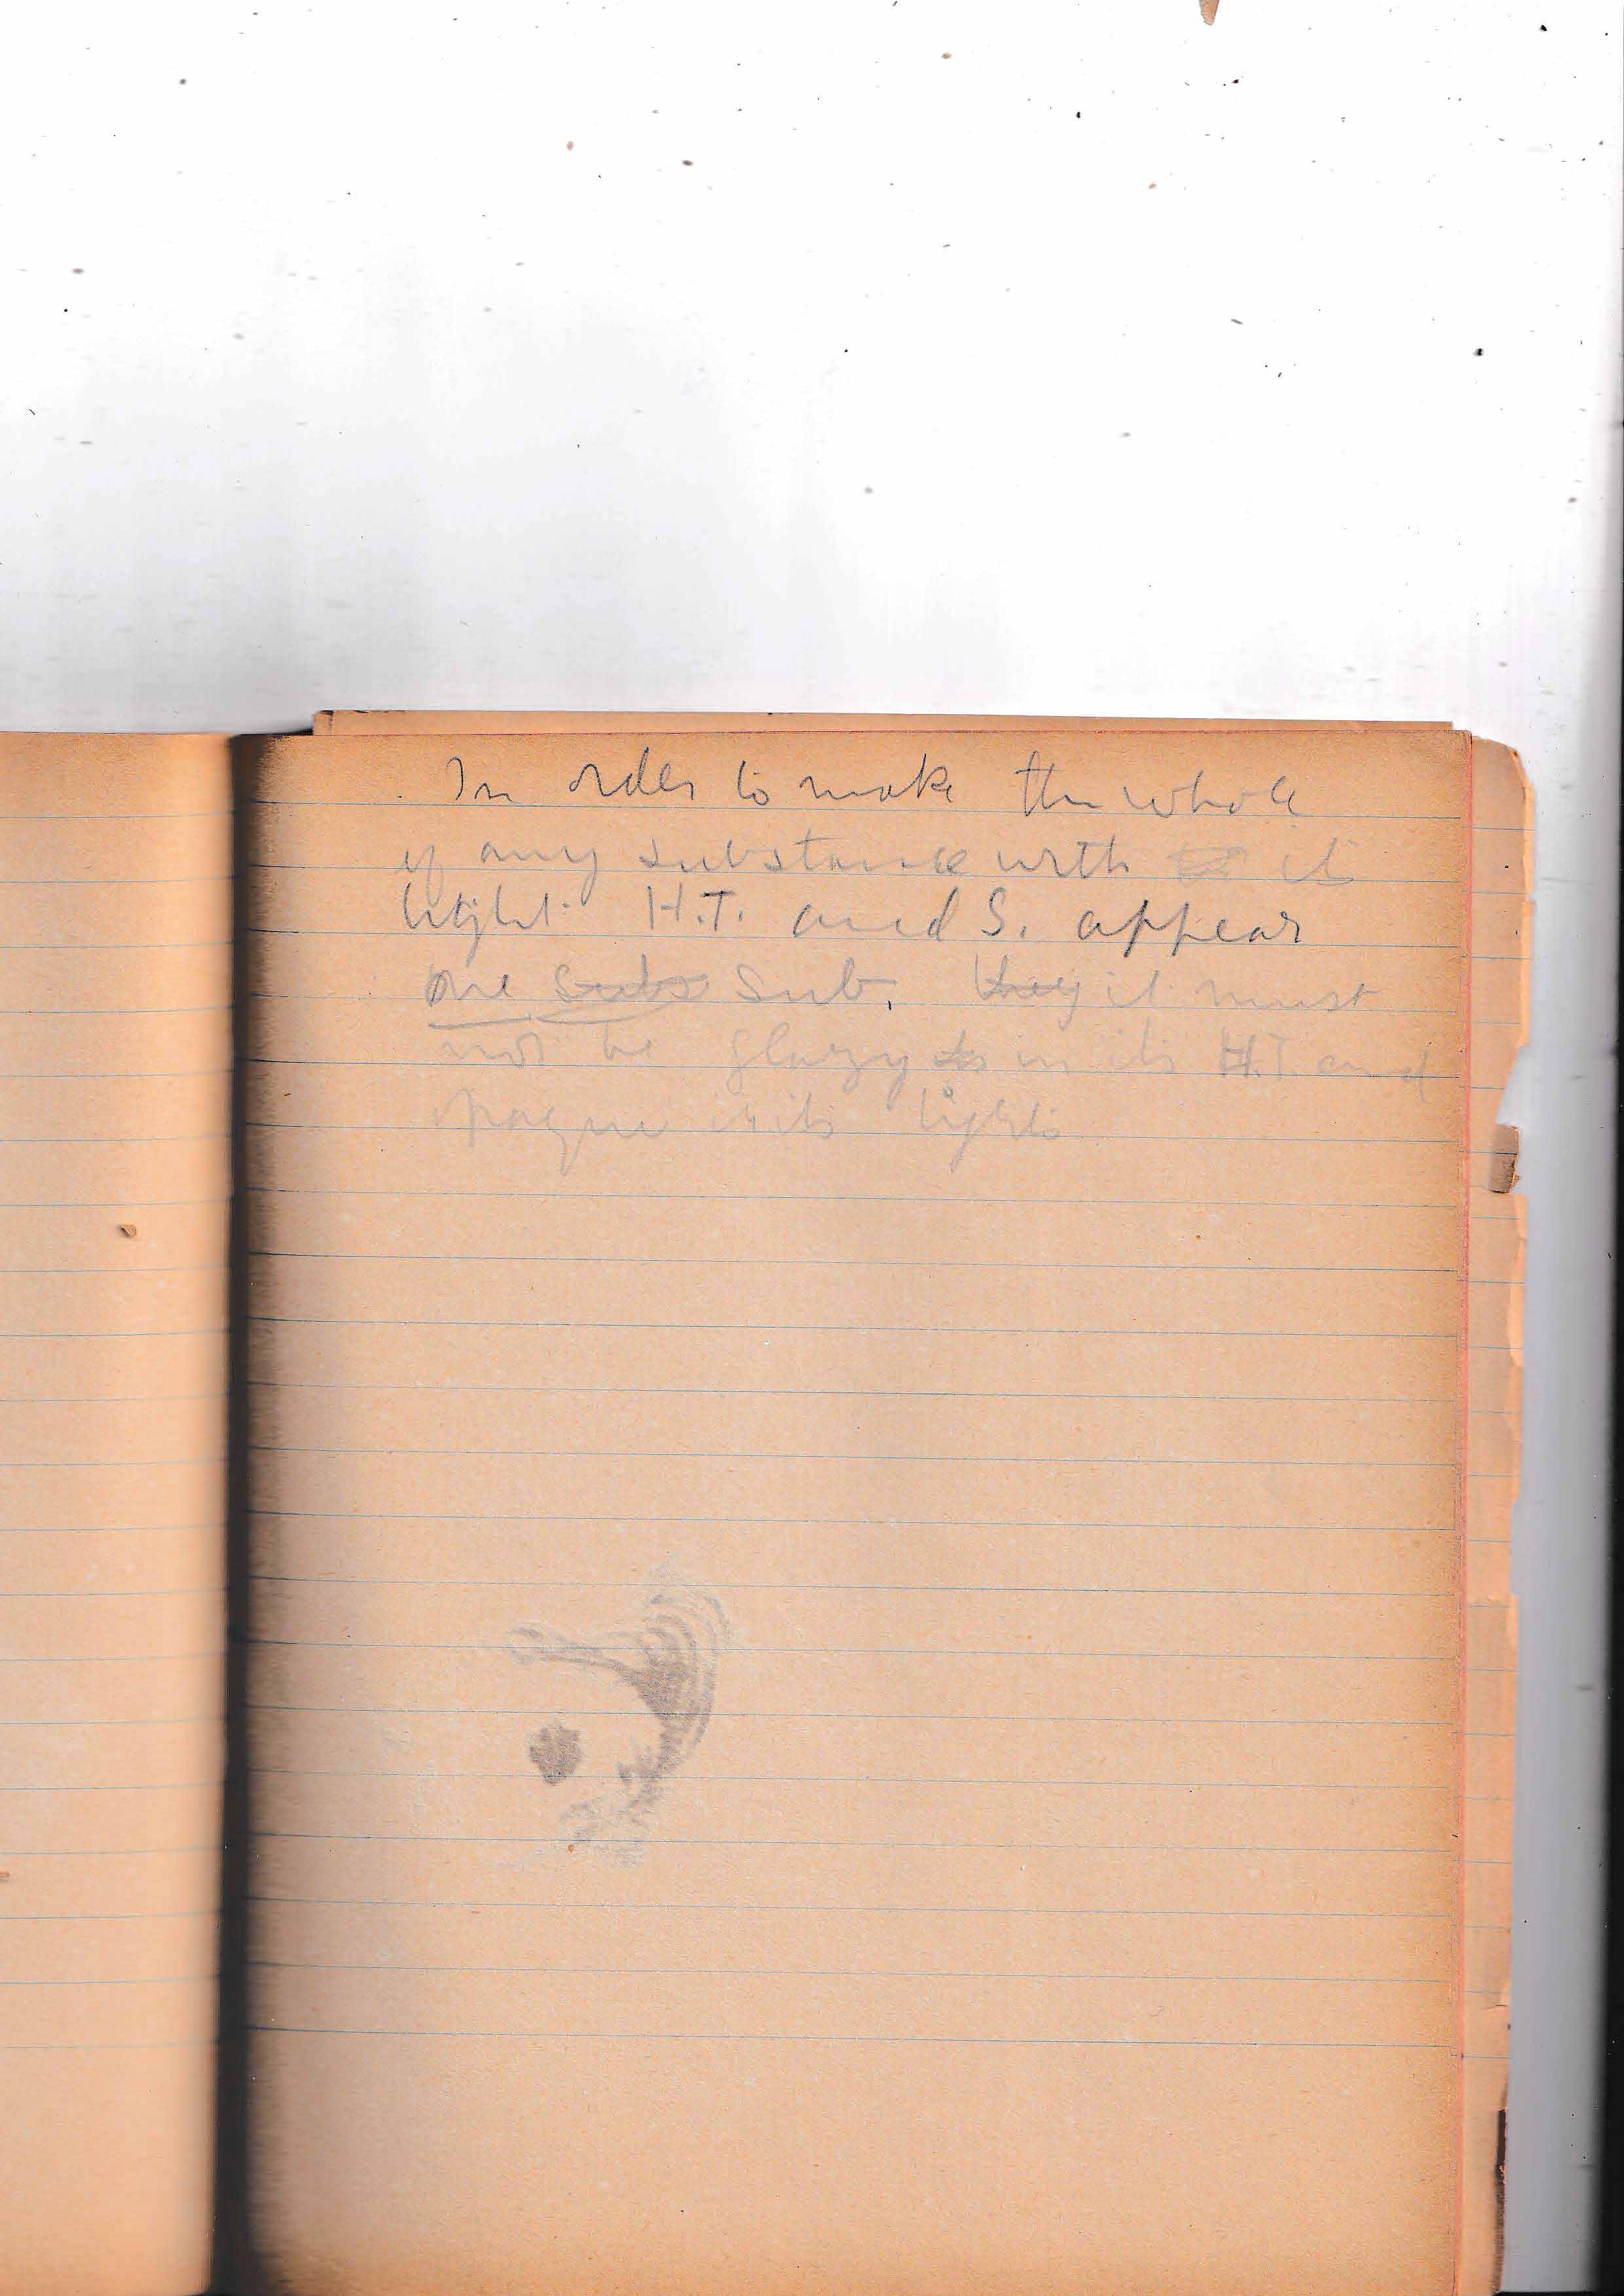 In order to make the whole
of any substance with its
light H.T. and S. appear
one subs Sub. they it must
not be glazy in its H.T. and
opaque in its lights